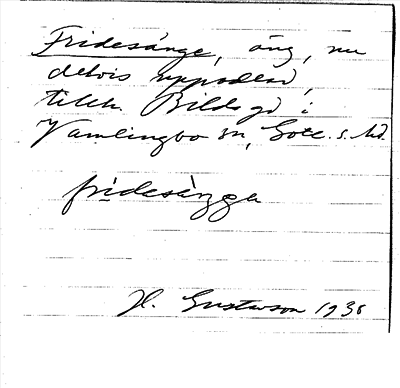 Fridesänge, äng, nu
delvis uppodlad,
tillh. Bilds gd i
Vamlingbo sn, Gotl. s. hd
frides
H. Gustavson 1938